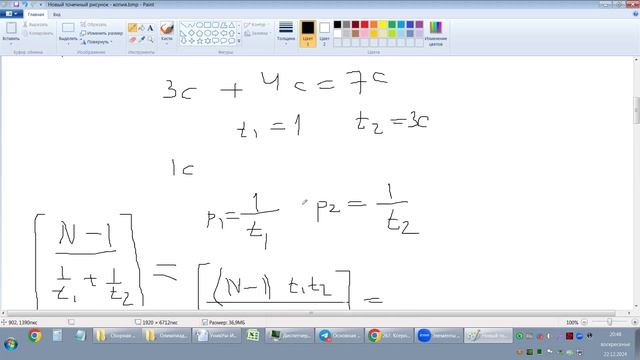 Новый точечный рисунок - копия.bmp - Paint
Главная Вид
Вставить Вырезать Копировать Выделить Обрезать Изменить размер Повернуть Кисти Контур Заливка Толщина Цвет 1 Цвет 2 Изменение цветов
Буфер обмена Изображение Инструменты Фигуры Цвета
3c + 4c = 7c
t₁ = 1 t₂ = 3c
1c
p₁ = 1/t₁ p₂ = 1/t₂
⌈(N-1)/(1/t₁ + 1/t₂)⌉ = ⌈(N-1) t₁t₂ =
902, 1390пкс 1920 × 6712пкс Размер: 36,9МБ 100%
Сборная Олимпиад Диспетчер Основная Элементы
20:48
воскресенье
22.12.2024